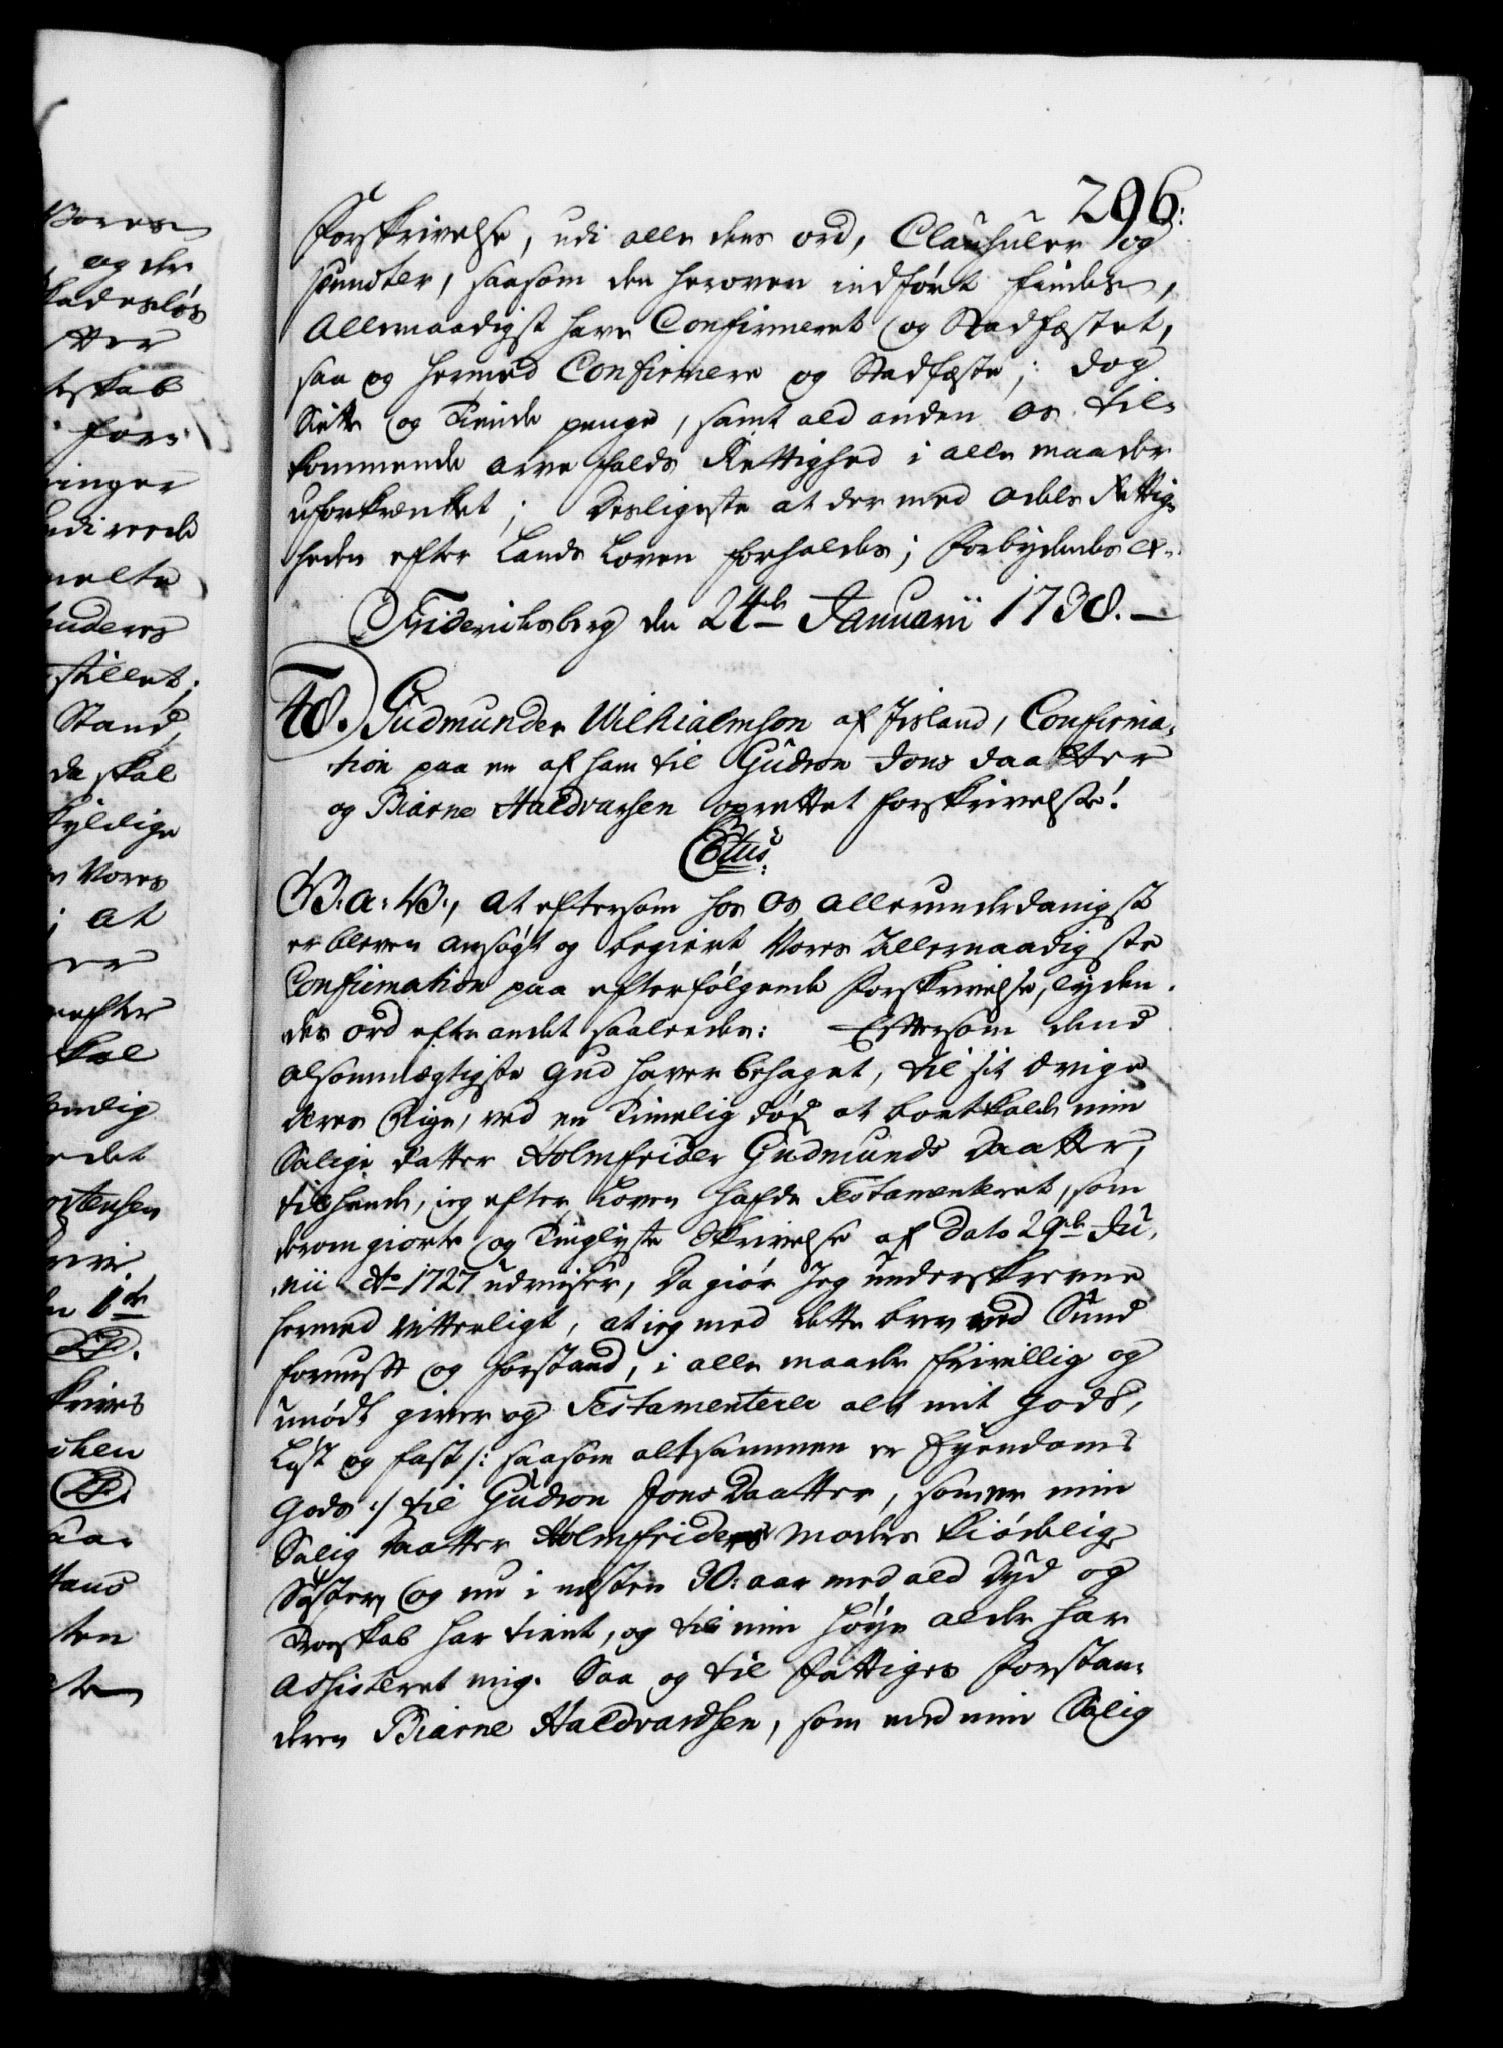 296.
Forskrivelse, udi alle dens ord, Clausuler og
puncter, saasom den heroven indført findes,
Allernaadigst have Confirmeret og Stadfæstet,
saa og hermed Confirmere og Stadfæste; dog
Siette og Tiende penge, samt ald anden os til-
kommende arve falds Rettighed i alle maader
uforkrænket; Desligeste at der med odels Rettig-
heden efter Lands Loven forholdes; Forbydendes &c.
Friderichsberg den 24de Januarii 1738.
48. Gudmunder Wilhialmson af Iisland, Confirma-
tion paa en af ham til Gudron Jons daatter
og Biarne Haldvarsen oprettet forskrivelse.
C6tus.
W. a: W., at eftersom hos os allerunderdanigst
er bleven ansøgt og begiert Vores Allernaadigste
Confirmation paa efterfølgende Forskrivelse, lyden-
des ord efter andet saaledes: Eftersom dend
alsommægtigste Gud haver behaget, til sit Ævige
Æres Rige, ved en Timelig død at bortkalde min
Salige datter Holmfrider Gudmunds Daatter,
til hende, ieg efter Loven hafde Testamenteret, som
derom giorte og Tinglyste Skrivelse af Dato 29de Ju-
nii Ao 1727 udviser, Da giør Jeg underskrevne
hermed vitterligt, at ieg med dette brev med Sund
fornuft og forstand, i alle maader frivillig og
unødt giver og Testamenterer alt mit Gods,
Løst og fast /: saasom altsammen er Eyendoms
Gods :/ til Gudron Jons Daatter, som er min
Salig daatter Holmfriders Moders kiødelig
Søster, og nu i næsten 30: aar med ald Dyd og
Troeskab har tient, og til min høye alder har
assisteret mig. Saa og til fattiges Forstan-
deren Biarne Haldvardsen, som med min Salig